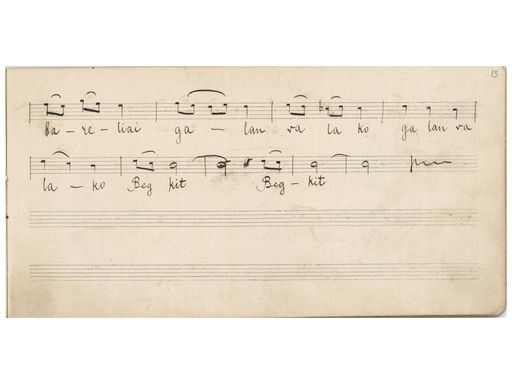 13
ba-re-liai ga-lan va la ko ga lan va
la-ko Beg kit Beg-kit